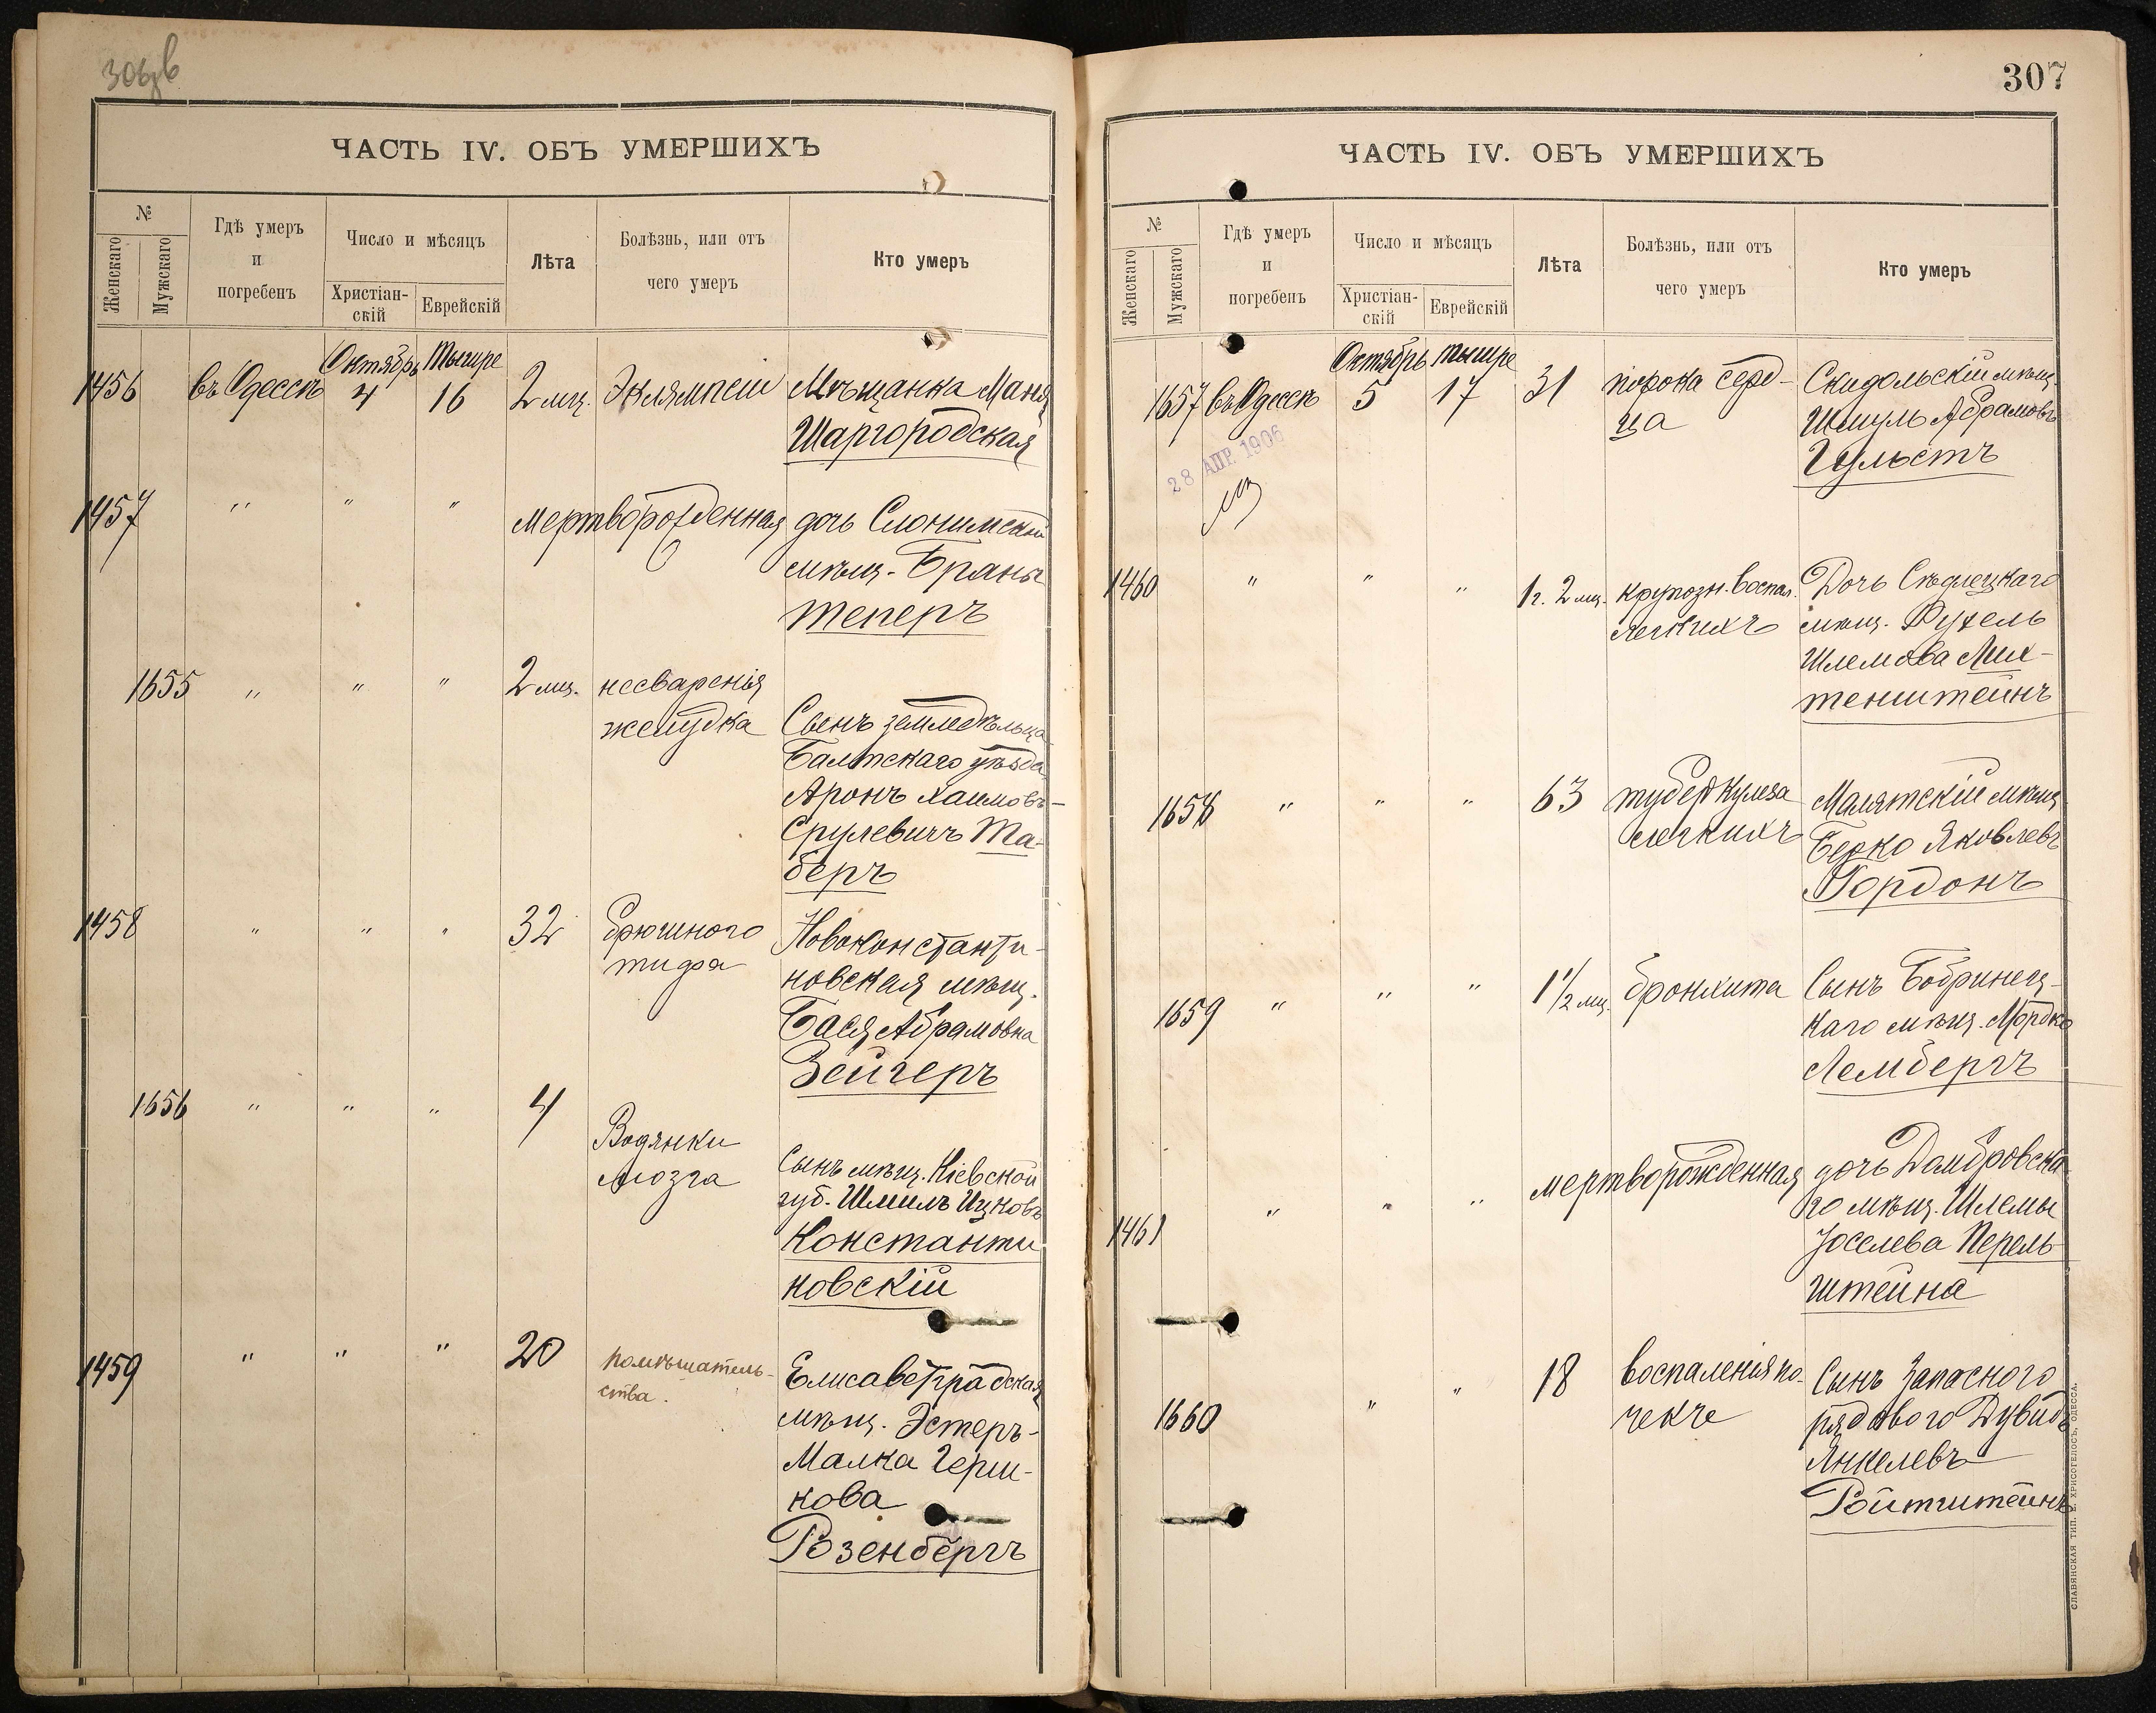 ЧАСТЬ IV. ОБЪ УМЕРШИХЪ
№
Женскаго
Мужскаго
Гдѣ умеръ
и
погребенъ
Число и мѣсяцъ
Христіан-
скій
Еврейскій
Лѣта
Болѣзнь, или отъ
чего умеръ
Кто умеръ
Октябрь Тышре
1456 въ Одессѣ 4 16 2 мц. Эклямпсіи Мѣщанка Маня
Шаргородская
1457 " " " Мертворожденная дочь Слонимской
мѣщ. Браны
Теперъ
1655 " " " 2 мц. несваренія
желудка Сынъ земледѣльца
Балтскаго уѣзда
Аронъ Хаимовъ-
Срулевичъ Та-
беръ
1458 " " " 32 брюшного Новоконстанти-
тифа новская мѣщ.
Бася Абрамовна
Зейгеръ
1656 " " " 4 Водянки
мозга Сынъ мѣщ. Кіевской
губ. Шмиль Ицковъ
Константи
новскій
1459 " " " 20 помѣшатель-
ства. Елисаветградская
мѣщ. Эстеръ-
Малка Герш-
кова
Розенбергъ
307
ЧАСТЬ IV. ОБЪ УМЕРШИХЪ
№
Женскаго
Мужскаго
Гдѣ умеръ
и
погребенъ
Число и мѣсяцъ
Христіан-
скій
Еврейскій
Лѣта
Болѣзнь, или отъ
чего умеръ
Кто умеръ
Октябрь Тышре
1657 въ Одессѣ 5 17 31 порока серд- Скидольскій мѣщ.
ца Шмуль Абрамовъ
Гульстъ
28 АПР. 1906
1460 " " " 1 г. 2 мц. крупозн. воспал. Дочь Сѣдлецкаго
легкихъ мѣщ. Рухель
Шлемова Лих-
тенштейнъ
1658 " " " 63 туберкулеза Малятскій мѣщ
легкихъ Берко Яковлевъ
Гордонъ
1659 " " " 1 1/2 мц. бронхита Сынъ Бобринец-
каго мѣщ. Мордко
Лембергъ
1461 " " " мертворожденная дочь Домбровска
го мѣщ. Шлемы
Іоселева Перель
штейна
1660 " " 18 воспаленія по- Сынъ Запасного
чекъ рядового Дувидъ
Янкелевъ
Ройтштейнъ
СЛАВЯНСКАЯ ТИП. Е. ХРИСОГЕЛОСЪ, ОДЕССА.